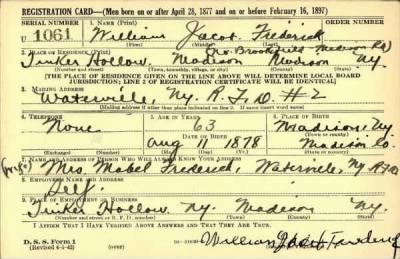 REGISTRATION CARD—(Men born on or after April 28, 1877 and on or before February 16, 1897)
SERIAL NUMBER 1. NAME (Print)
U 1061 William Jacob Frederick
(First) (Middle) (Last)
2. PLACE OF RESIDENCE (Print) (Brookfield Madison
Tinker Hollow Madison Madison Ny
(Number and street) (Town, township, village, or city) (County) (State)
[THE PLACE OF RESIDENCE GIVEN ON THE LINE ABOVE WILL DETERMINE LOCAL BOARD
JURISDICTION; LINE 2 OF REGISTRATION CERTIFICATE WILL BE IDENTICAL]
3. MAILING ADDRESS
Waterville Ny. R.F.D #2
[Mailing address if other than place indicated on line 2. If same insert word same]
4. TELEPHONE 5. AGE IN YEARS 6. PLACE OF BIRTH
None 63 Madison Ny
DATE OF BIRTH (Town or county)
Aug 11 1878 Madison Co.
(Exchange) (Number) (Mo.) (Day) (Yr.) (State or country)
7. NAME AND ADDRESS OF PERSON WHO WILL ALWAYS KNOW YOUR ADDRESS
(wife) Mrs Mabel Frederick, Waterville, Ny RFD
8. EMPLOYER'S NAME AND ADDRESS
Self.
9. PLACE OF EMPLOYMENT OR BUSINESS
Tinker Hollow Ny. Madison Ny.
(Number and street or R. F. D. number) (Town) (County) (State)
I AFFIRM THAT I HAVE VERIFIED ABOVE ANSWERS AND THAT THEY ARE TRUE.
D. S. S. Form 1
(Revised 4-1-42) (over) William Jacob Frederick